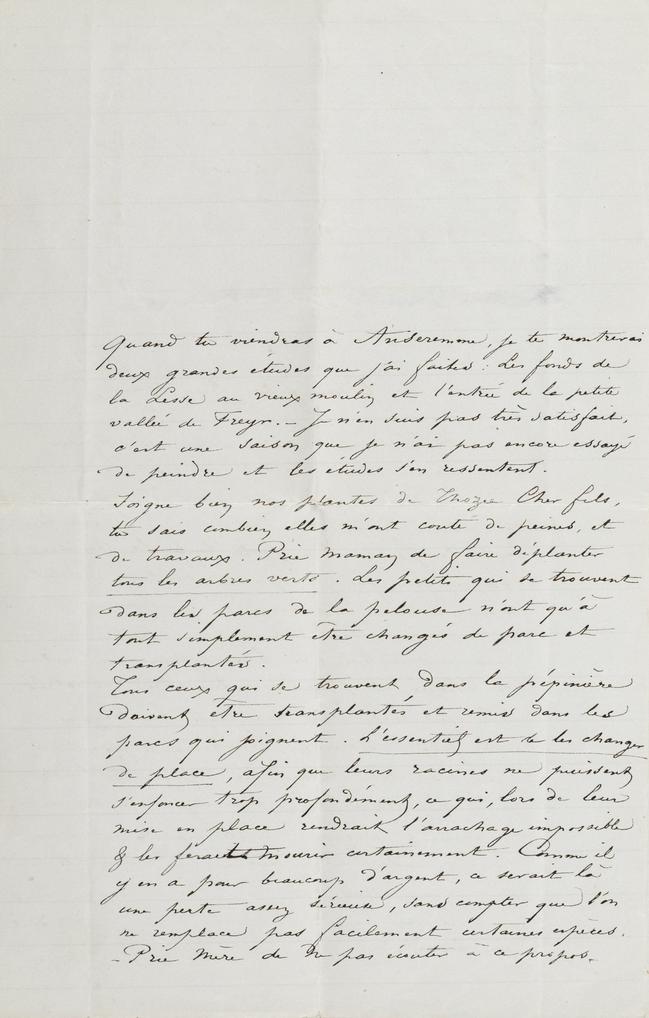 Quand tu viendras à Anseremme, je te montrerai
deux grandes études que j'ai faites : Les fonds de
la Lesse au vieux moulin et l'entrée de la petite
vallée de Freyr. – Je n'en suis pas très satisfait,
c'est une saison que je n'ai pas encore essayé
de peindre et les études s'en ressentent.
Soigne bien nos plantes de Thozée Cher fils,
tu sais combien elles m'ont couté de peines, et
de travaux. Prie Maman de faire déplanter
tous les arbres verts. Les petits qui se trouvent
dans les parcs de la pelouse n'ont qu'à
tout simplement être changés de parc et
transplantés.
Tous ceux qui se trouvent dans la pépinière
doivent être transplantés et remis dans les
parcs qui joignent. L'essentiel est de les changer
de place, afin que leurs racines ne puissent
s'enfoncer trop profondément, ce qui, lors de leur
mise en place rendrait l'arrachage impossible
& les ferait mourir certainement. Comme il
y en a pour beaucoup d'argent, ce serait là
une perte assez sérieuse, sans compter que l'on
ne remplace pas facilement certaines espèces.
– Prie Mère de ne pas écouter à ce propos.